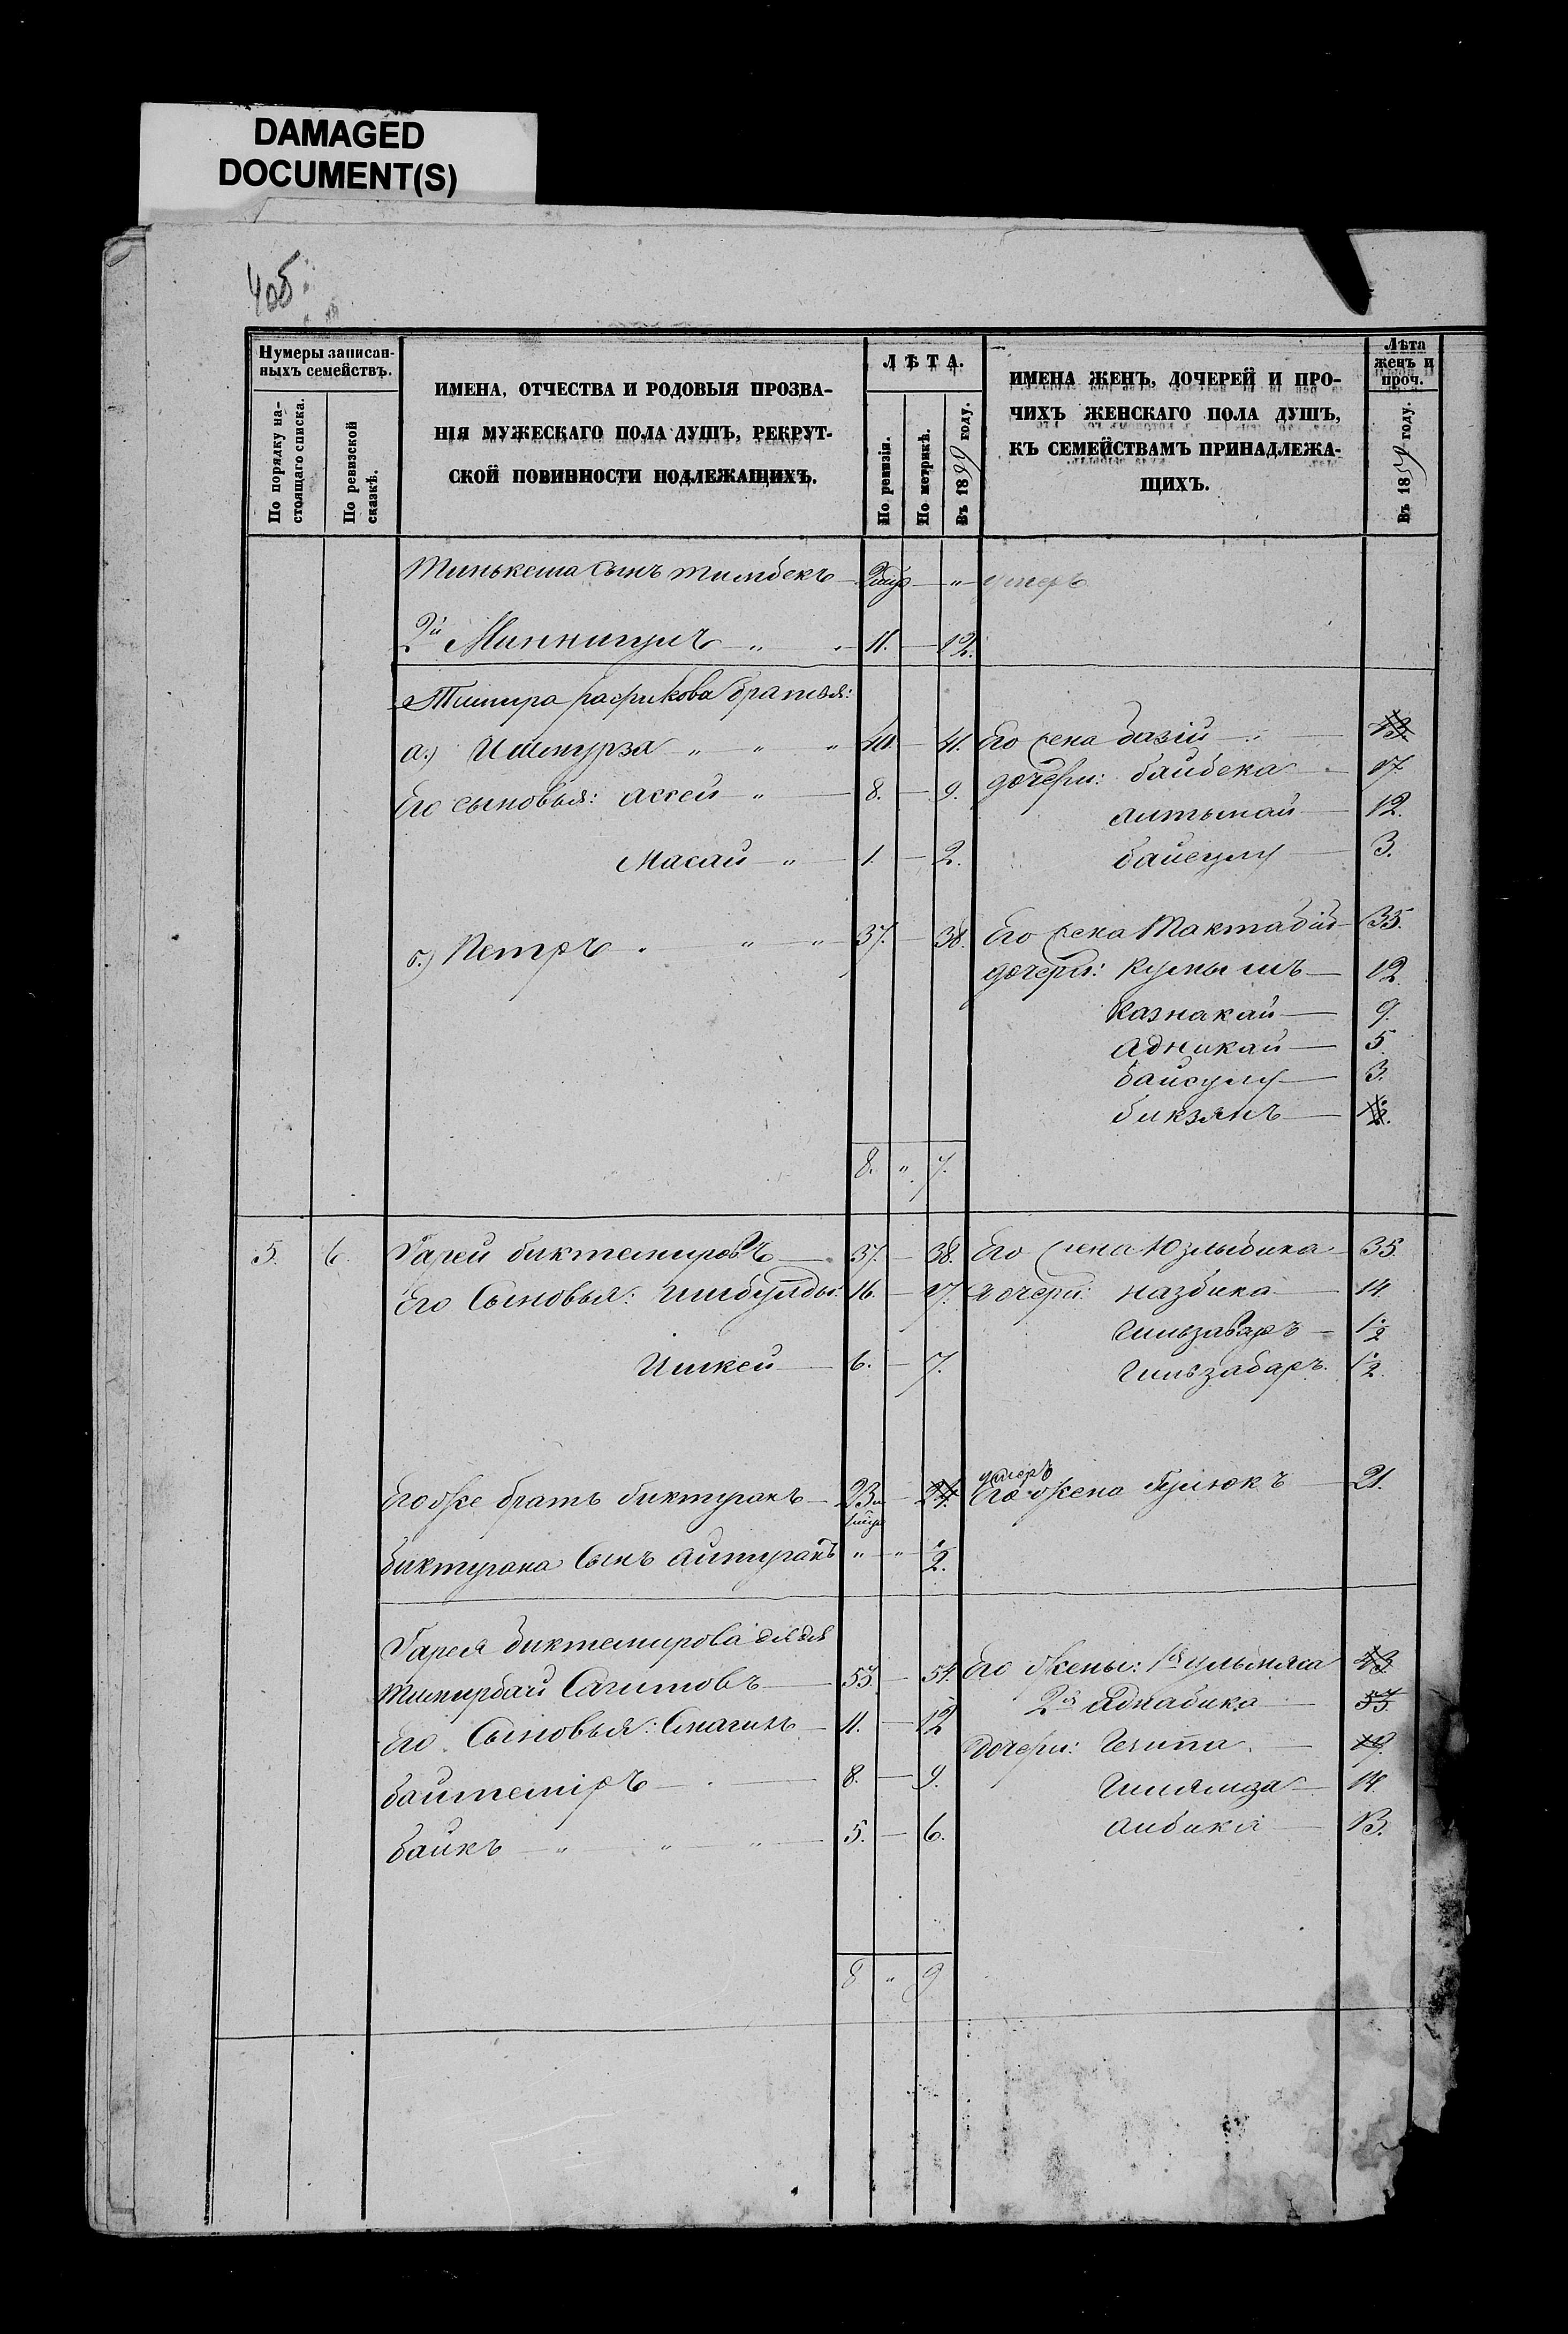 DAMAGED
DOCUMENT(S)
405
Нумеры записан-
ныхъ семействъ.
По порядку на-
стоящаго списка.
По ревизской
сказкѣ.
ИМЕНА, ОТЧЕСТВА И РОДОВЫЯ ПРОЗВА-
НІЯ МУЖЕСКАГО ПОЛА ДУШЪ, РЕКРУТ-
СКОЙ ПОВИННОСТИ ПОДЛЕЖАЩИХЪ.
ЛѢТА.
По ревизіи.
По метрикѣ.
Въ 1859 году.
ИМЕНА ЖЕНЪ, ДОЧЕРЕЙ И ПРО-
ЧИХЪ ЖЕНСКАГО ПОЛА ДУШЪ,
КЪ СЕМЕЙСТВАМЪ ПРИНАДЛЕЖА-
ЩИХЪ.
Лѣта
женъ и
проч.
Въ 1859 году.
сынъ — " умеръ
2й Миннигулъ — " " 11. — 12.
братья:
а.) Ишмурза " — " " 40 — 41. Его жена базій — "
Его сыновья: Аккей — " — 8. — 9. дочери: баибека — 17
алтынай — 12.
Масай — " — 1. — 2. байсулу — 3.
б.) Петръ " " — " 37. — 38. Его жена Мактабій — 35.
дочери: Кумышъ — 12.
Казнакай — 9.
Адникай — 5.
байсулу — 3.
бикзянъ —
8. " 7.
5. 6. Гарей биктемировъ — 37. — 38. Его жена Юзлыбика — 35.
Его Сыновья: ишбулды: 16. — 17. дочери: назбика — 14.
Гильзабаръ — 1/2
Ишкей — 6. — 7. Гильзабаръ. 1/2.
умеръ
Его же братъ биктуганъ — 23 — 24. Его жена — 21.
биктугана Сынъ аитуганъ " — " 1/2.
Гарея биктемирова дядя
Тимирбай Сагитовъ — 53. — 54. Его жены: 1я 43
Его Сыновья: Смагилъ — 11. — 12 2я Аднабика — 33.
дочери: — 19.
баитемiръ — 8. — 9. 14.
баикъ — " — " — " 5. — 6. аибика — 13.
8 " 9